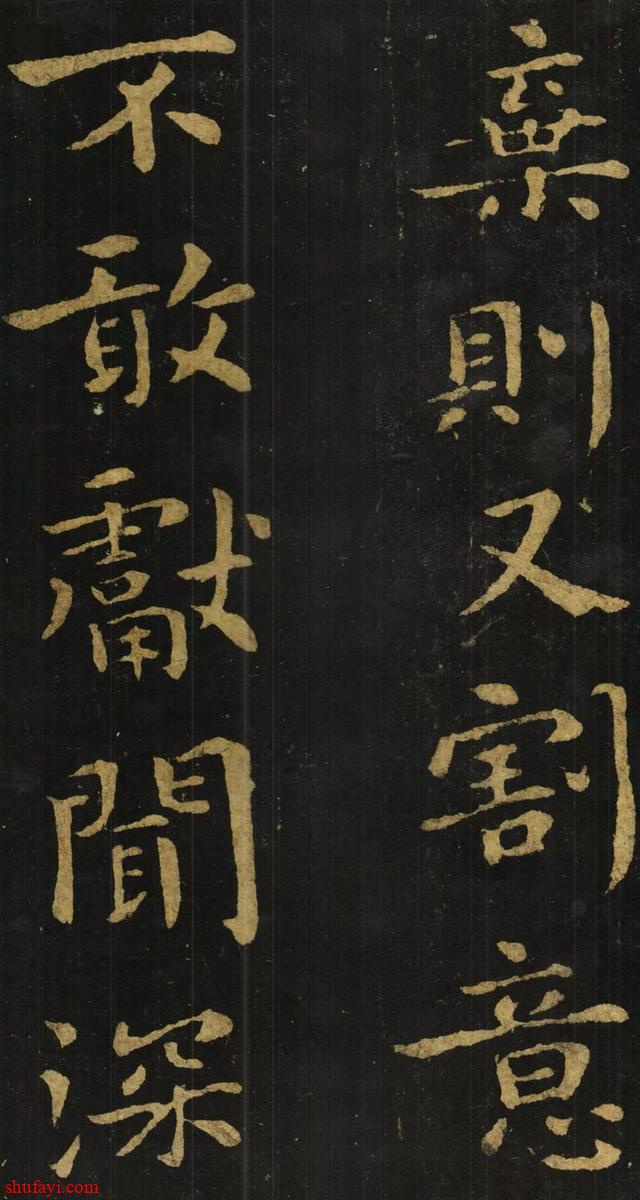 棄則又割意
不敢獻聞深
shufayi.com